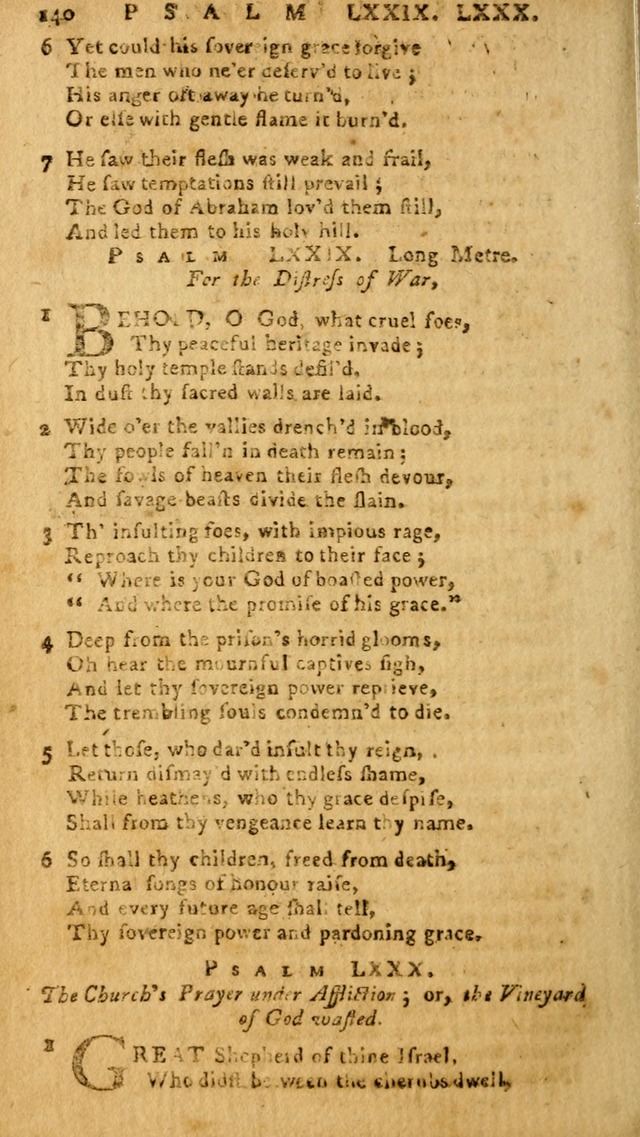 140 P S A L M LXXIX. LXXX.
6 Yet could his ſovereign grace forgive
The men who ne'er deſerv'd to live ;
His anger oft away he turn'd,
Or elſe with gentle flame it burn'd.
7 He ſaw their fleſh was weak and frail,
He ſaw temptations ſtill prevail ;
The God of Abraham lov'd them ſtill,
And led them to his holy hill.
P S A L M LXXIX. Long Metre.
For the Diſtreſs of War,
1 BEHOLD, O God, what cruel foes,
Thy peaceful heritage invade ;
Thy holy temple ſtands defil'd,
In duſt thy ſacred walls are laid.
2 Wide o'er the vallies drench'd in blood,
Thy people fall'n in death remain ;
The fowls of heaven their fleſh devour,
And ſavage beaſts divide the ſlain.
3 Th' inſulting foes, with impious rage,
Reproach thy children to their face ;
“ Where is your God of boaſted power,
“ And where the promiſe of his grace.”
4 Deep from the priſon's horrid glooms,
Oh hear the mournful captives ſigh,
And let thy ſovereign power reprieve,
The trembling ſouls condemn'd to die.
5 Let thoſe, who dar'd inſult thy reign,
Return diſmay'd with endleſs ſhame,
While heathens, who thy grace deſpiſe,
Shall from thy vengeance learn thy name.
6 So ſhall thy children, freed from death,
Eternal ſongs of honour raiſe,
And every future age ſhall tell,
Thy ſovereign power and pardoning grace.
P S A L M LXXX.
The Church's Prayer under Affliction ; or, the Vineyard
of God waſted.
1 GREAT Shepherd of thine Iſrael,
Who didſt between the cherubs dwell,